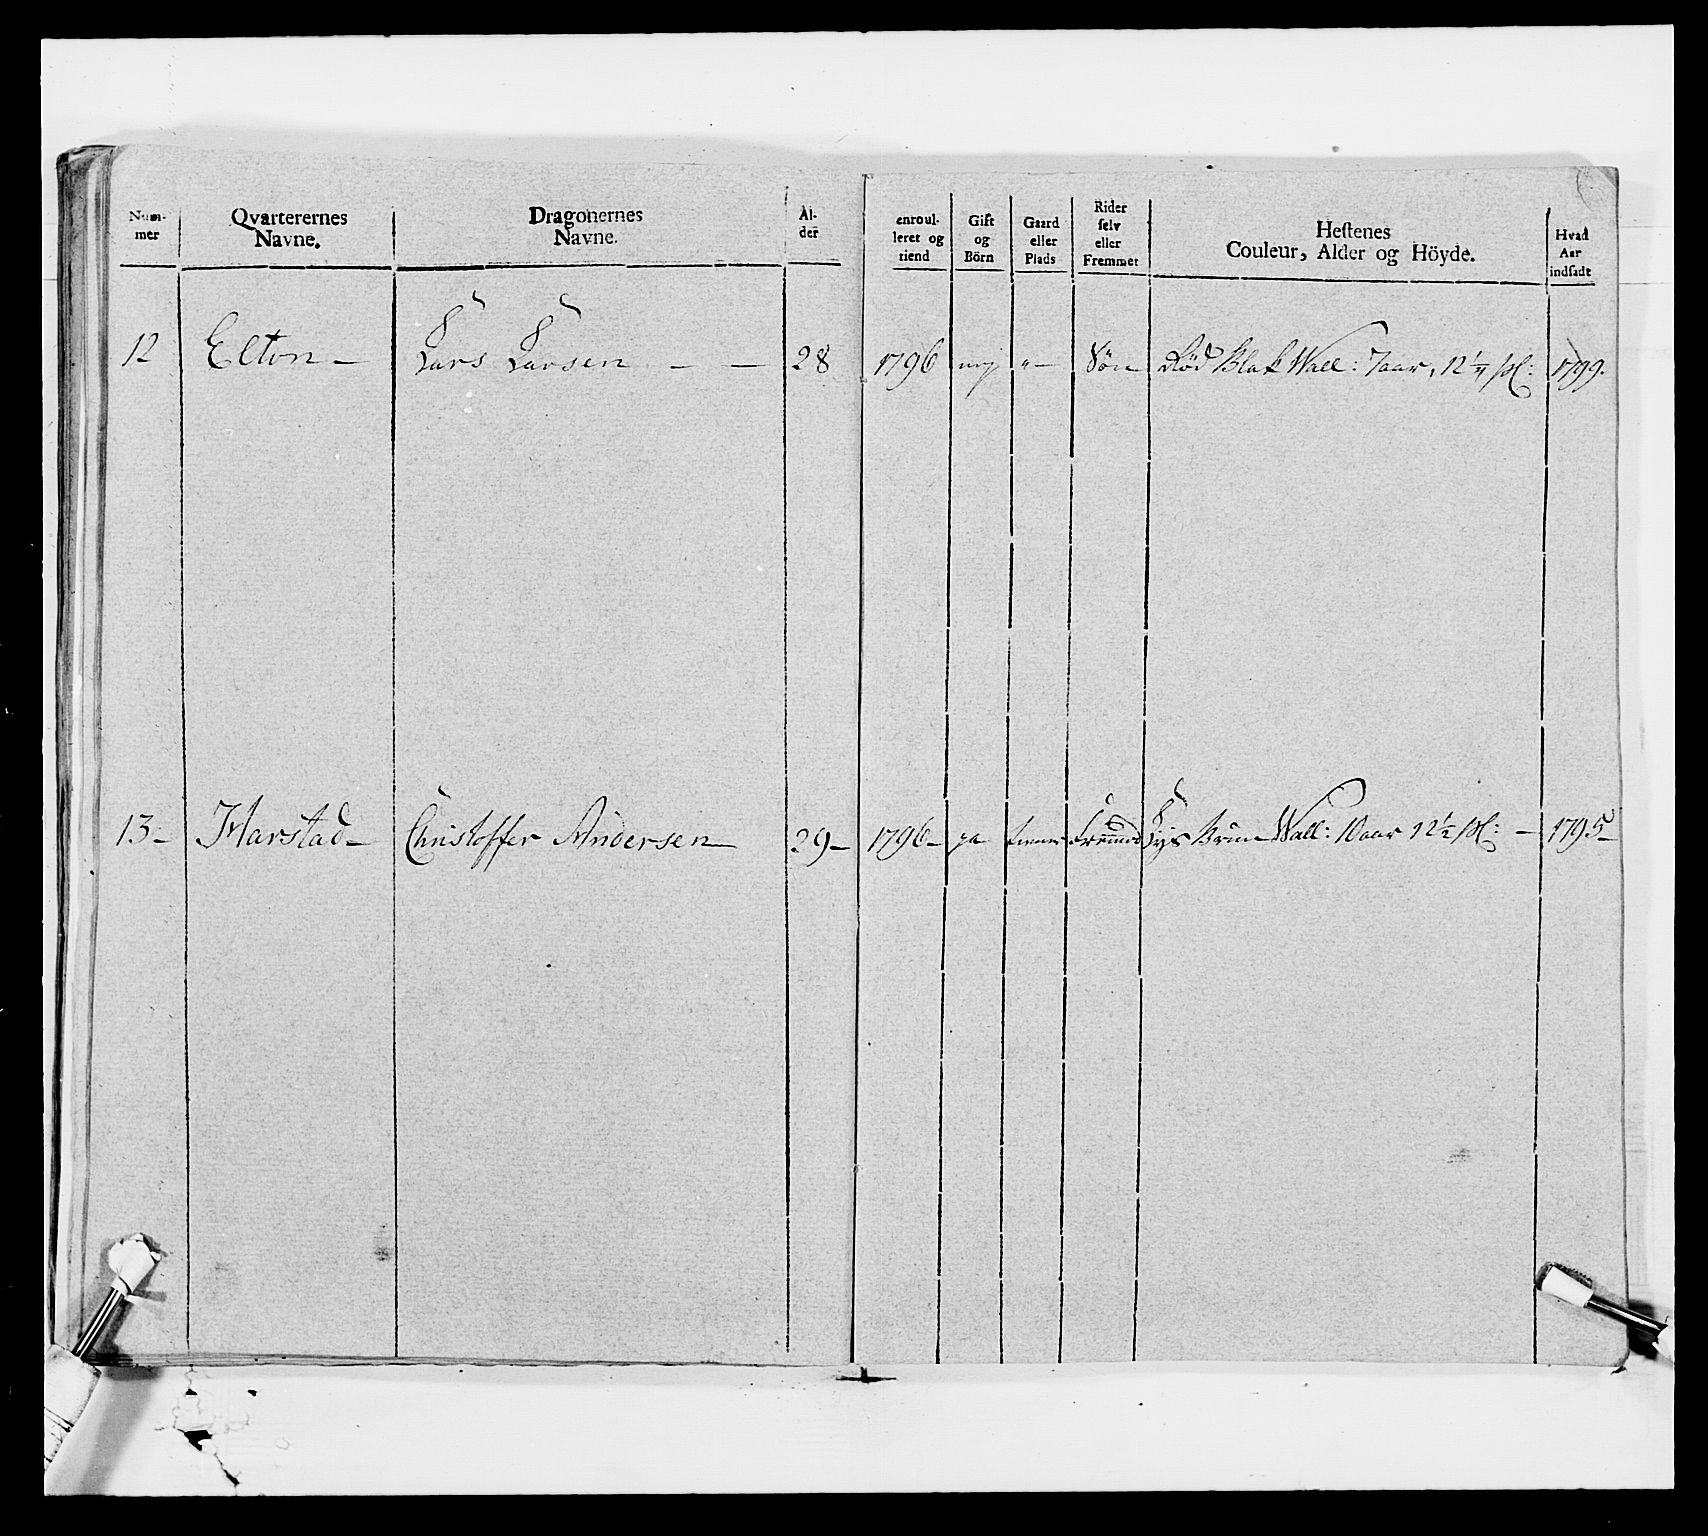 Num-
mer
Qvarterernes
Navne.
Dragonernes
Navne.
Al-
der
enroul-
leret og
tiend
Gift
og
Börn
Gaard
eller
Plads
Rider
selv
eller
Fremmet
Hestenes
Couleur, Alder og Höyde.
Hvad
Aar
indsadt
12 Elton - Lars Larsen - - 28 1796 nej "- Søn Rød Blak Wall: 7 aar, 12 1/4 1799.
13- Harstad- Christoffer Andersen- 29- 1796- ja Fremed Lys Brun Wall: 10 aar 12 1/2 - 1795-